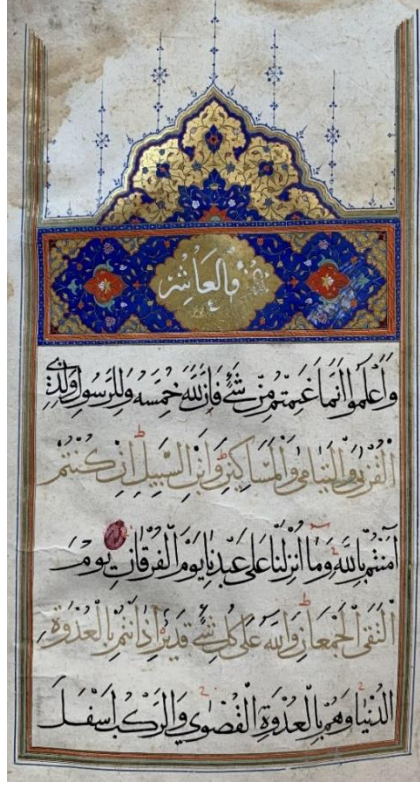 والعاشر
وَاعْلَمُوا أَنَّمَا غَنِمْتُمْ مِنْ شَيْءٍ فَأَنَّ لِلَّهِ خُمُسَهُ وَلِلرَّسُولِ وَلِذِي
الْقُرْبَى وَالْيَتَامَى وَالْمَسَاكِينِ وَابْنِ السَّبِيلِ إِنْ كُنْتُمْ
آمَنْتُمْ بِاللَّهِ وَمَا أَنْزَلْنَا عَلَى عَبْدِنَا يَوْمَ الْفُرْقَانِ يَوْمَ
الْتَقَى الْجَمْعَانِ وَاللَّهُ عَلَى كُلِّ شَيْءٍ قَدِيرٌ إِذْ أَنْتُمْ بِالْعُدْوَةِ
الدُّنْيَا وَهُمْ بِالْعُدْوَةِ الْقُصْوَى وَالرَّكْبُ أَسْفَلَ